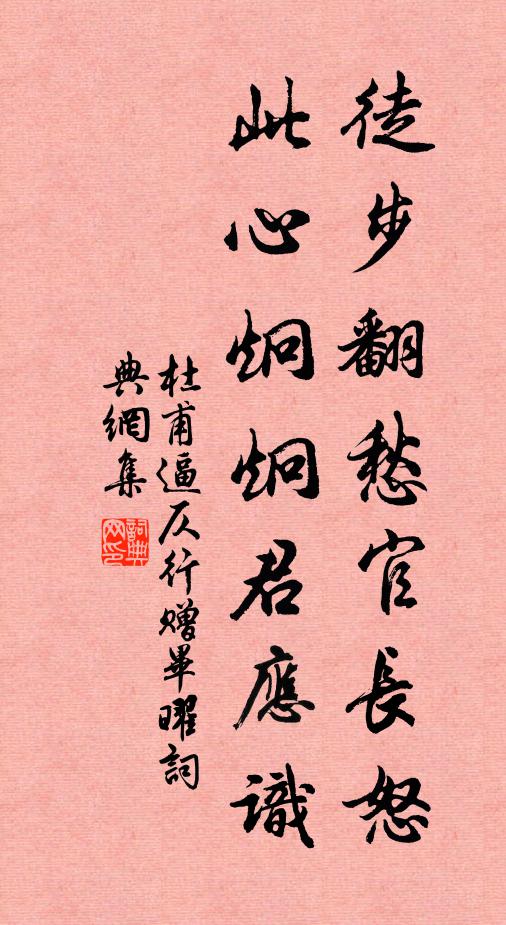 徒步翻愁官長怒
此心炯炯君應識
杜甫逼仄行贈畢曜詞
典網集
詞典
網印